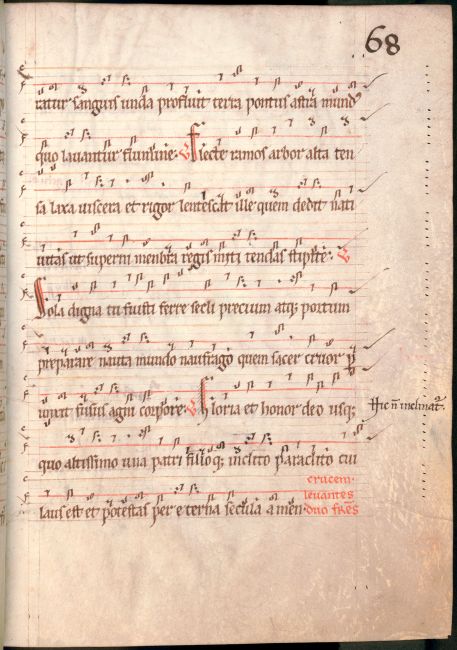 68
ratur sanguis unda profluit terra pontus astra mund9
quo lavantur flumine. Flecte ramos arbor alta ten
sa laxa viscera et rigor lentescat ille quem dedit nati
vitas ut superni menbra regis miti tendas stipite.
Sola digna tu fuisti ferre secli precium atq; portum
preparare nauta mundo naufrago quem sacer cruor p
unxit fusus agni corpore. Gloria et honor deo usq;
Hic n̄ inclinat᷑.
quo altissimo una patri filioq; inclito paraclito cui
crucem.
levantes
laus est et potestas per eterna secula amen. duo fr̄es